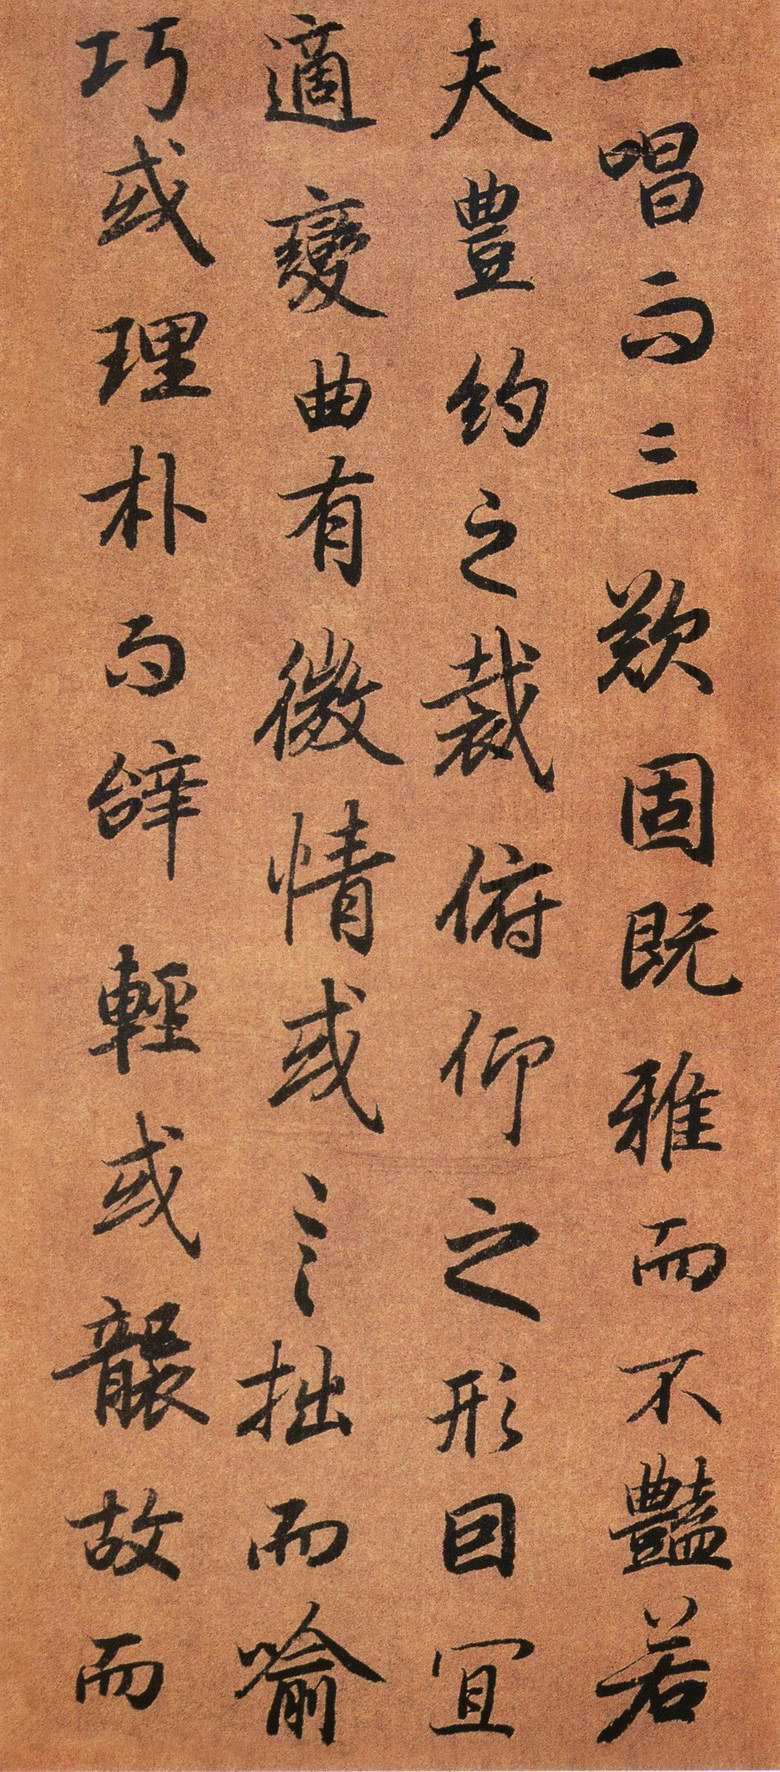 一唱而三歎固既雅而不豔若
夫豊約之裁俯仰之形因宜
適變曲有微情或言拙而喻
巧或理朴而辞輕或襲故而